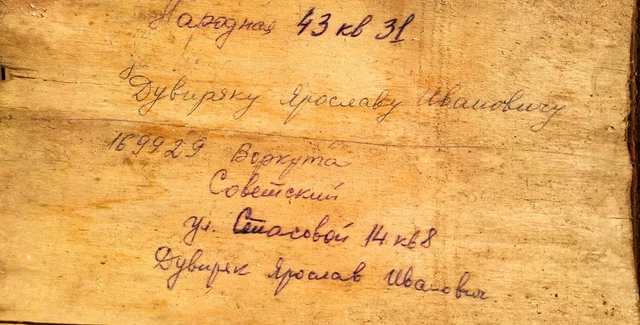 Народная 43 кв 31
ул
Дувиряку Ярославу Ивановичу
169929 Воркута
Советский
ул. Стасовой 14 кв 8
Дувиряк Ярослав Иванович